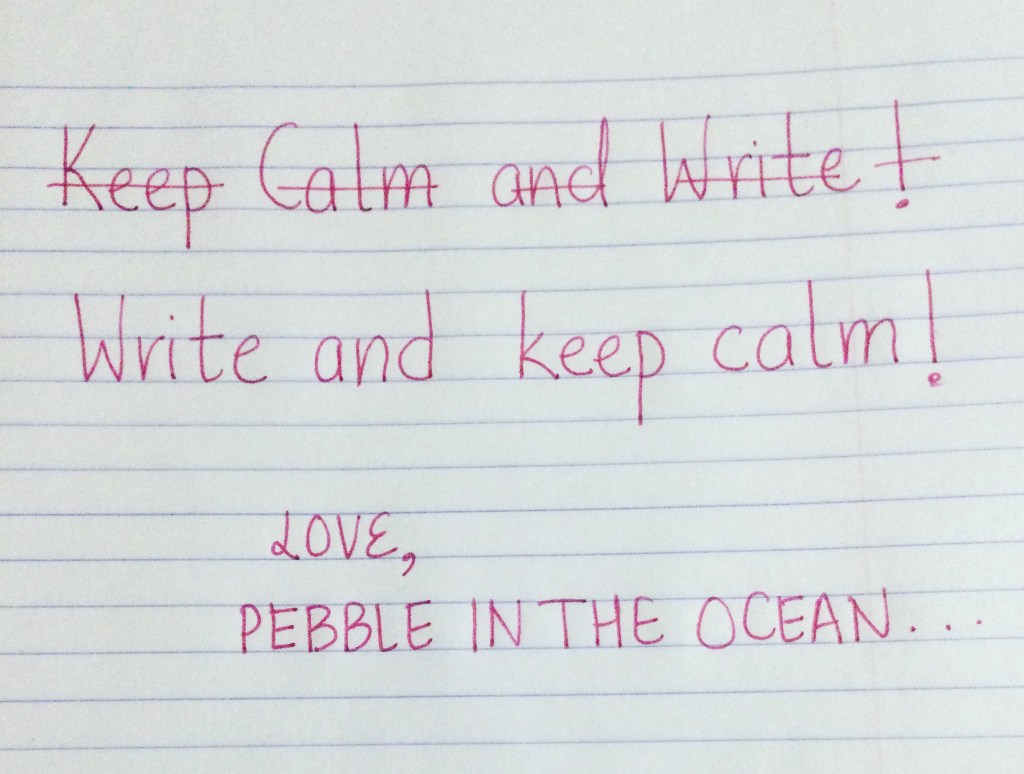 Keep Calm and Write!
Write and keep calm!
LOVE,
PEBBLE IN THE OCEAN...